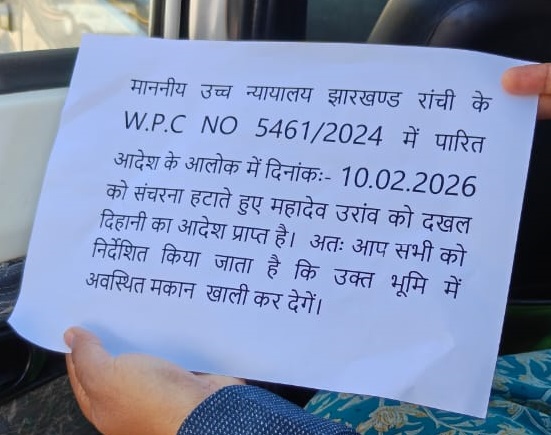 माननीय उच्च न्यायालय झारखण्ड रांची के
W.P.C NO 5461/2024 में पारित
आदेश के आलोक में दिनांकः- 10.02.2026
को संचरना हटाते हुए महादेव उरांव को दखल
दिहानी का आदेश प्राप्त है। अतः आप सभी को
निर्देशित किया जाता है कि उक्त भूमि में
अवस्थित मकान खाली कर देगें।